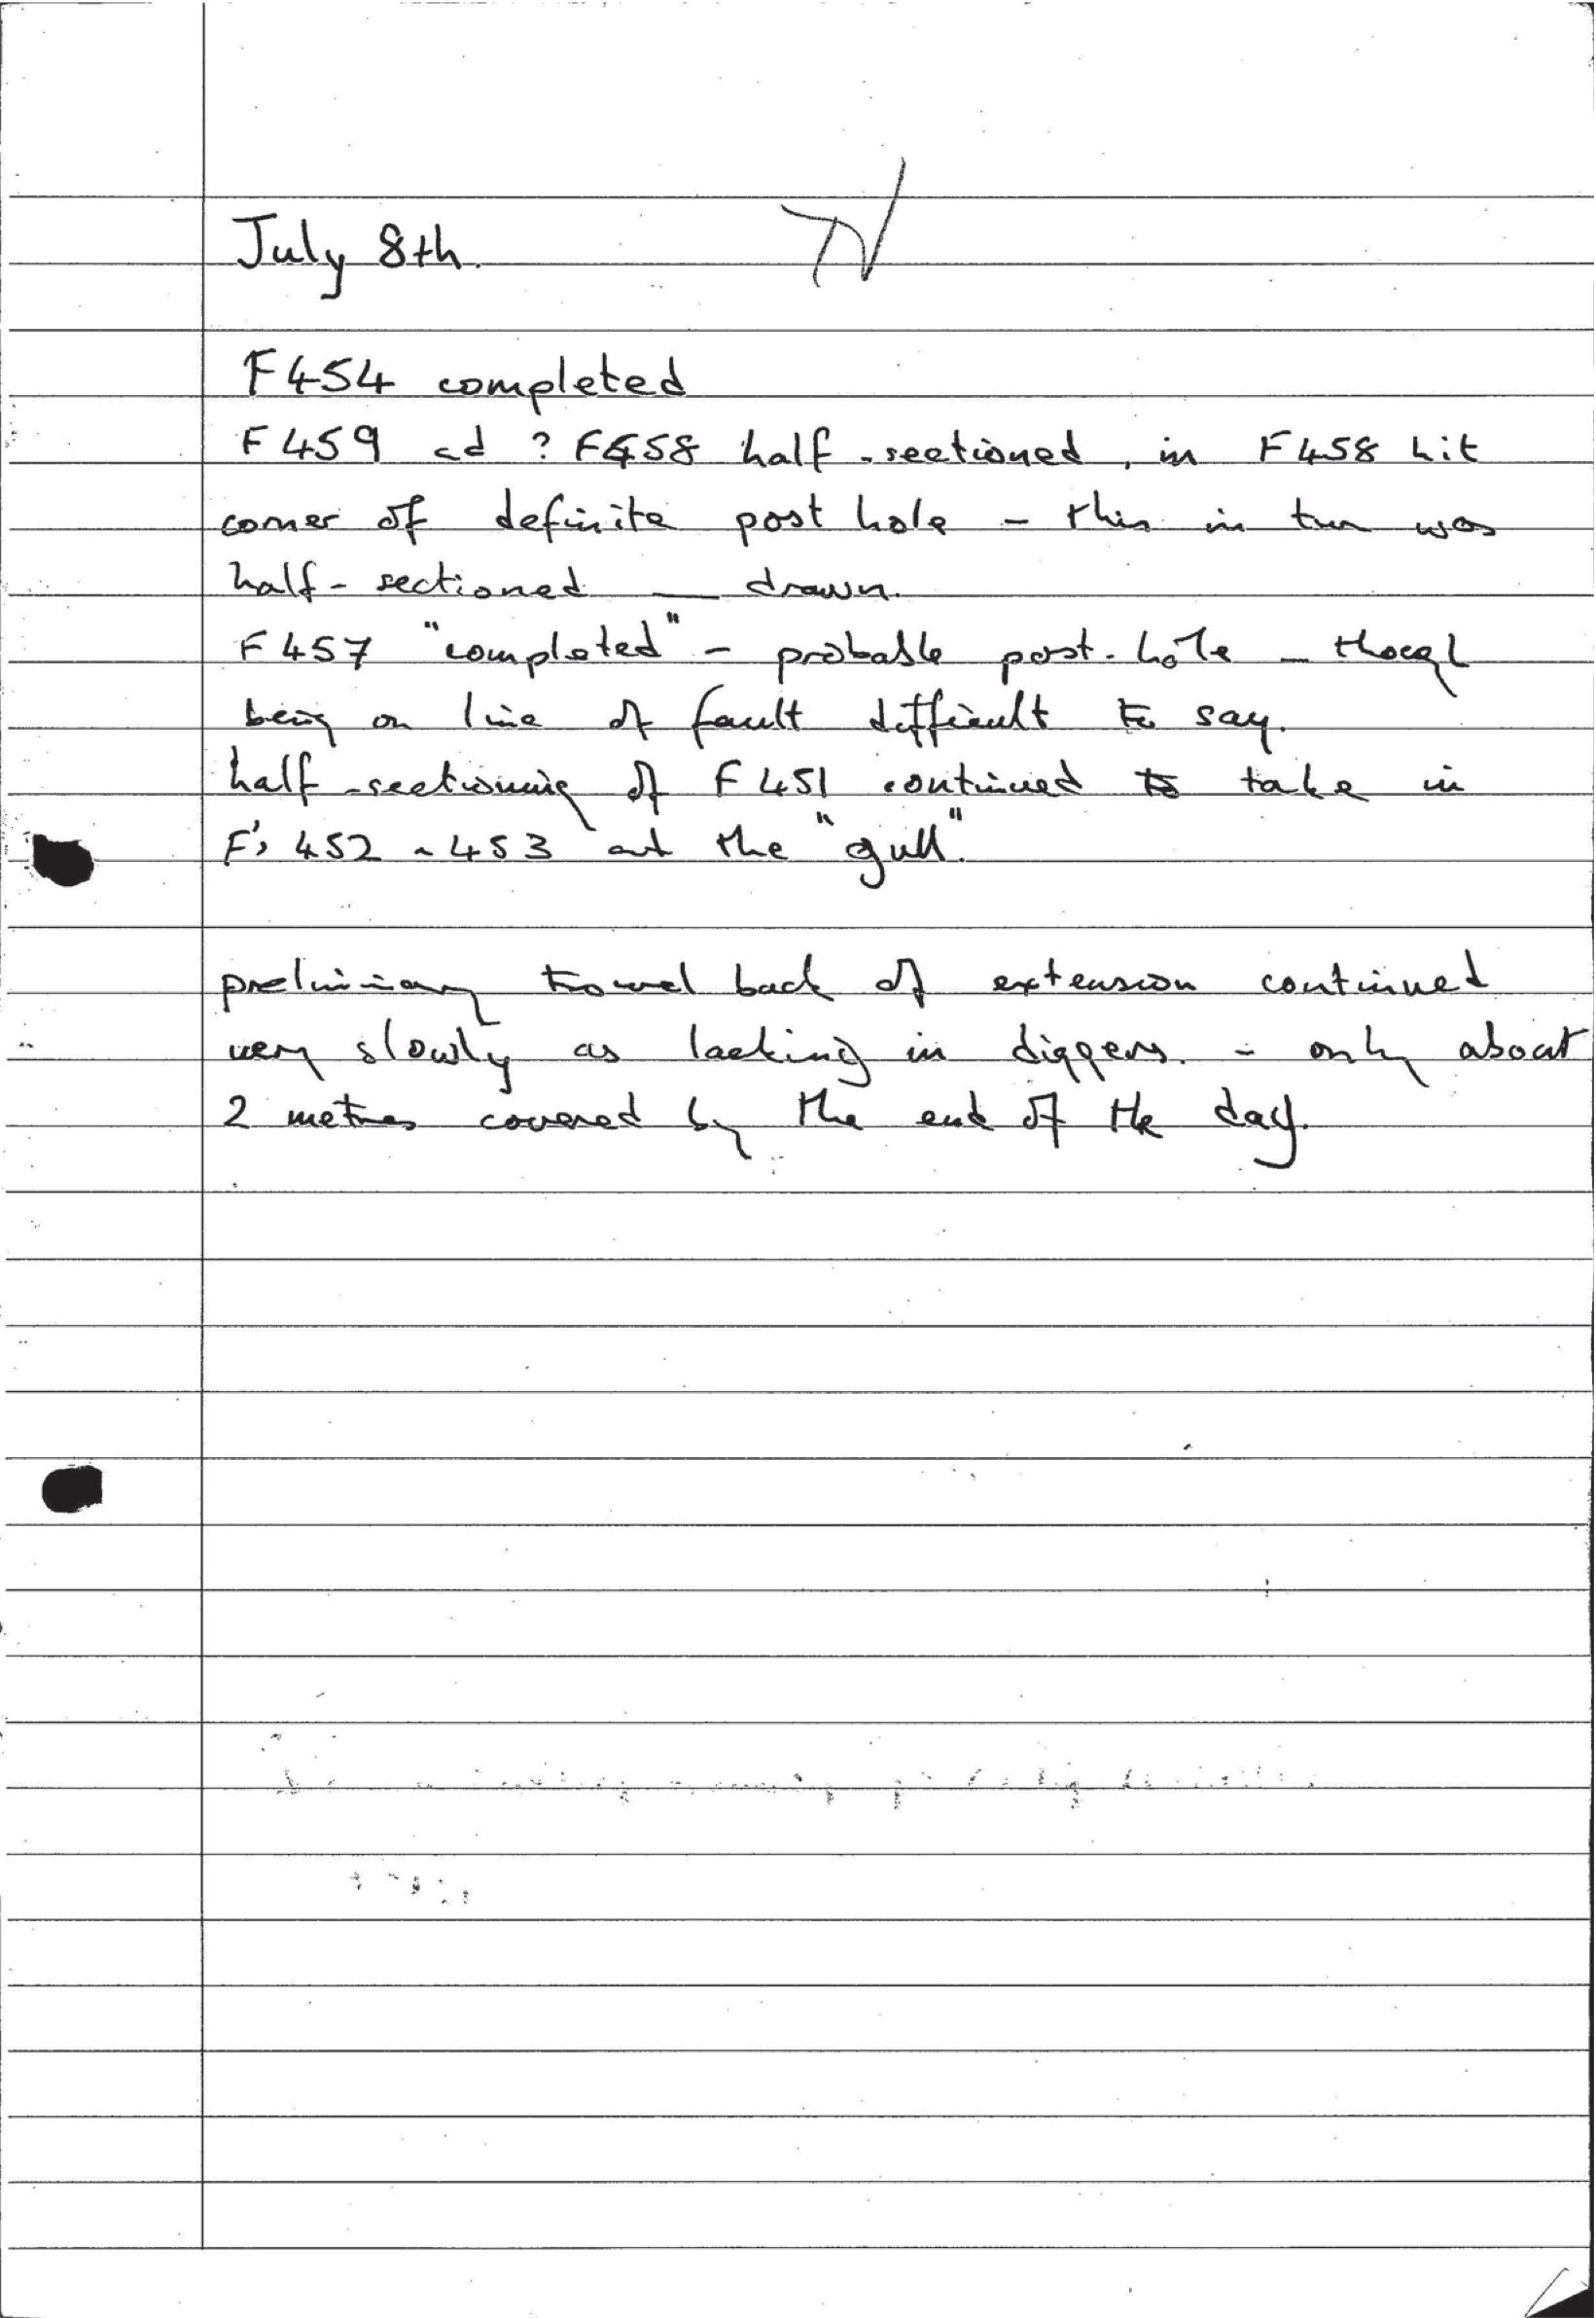 July 8th.
F454 completed
F459 ad ? F458 half-sectioned, in F458 hit
corner of definite post hole - this in turn was
half-sectioned — drawn.
F457 "completed" - probable post-hole - though
being on line of fault difficult to say.
half-sectioning of F451 continued to take in
F's 452 & 453 and the "gull".
preliminary trowel back of extension continued
very slowly as lacking in diggers. - only about
2 metres covered by the end of the day.